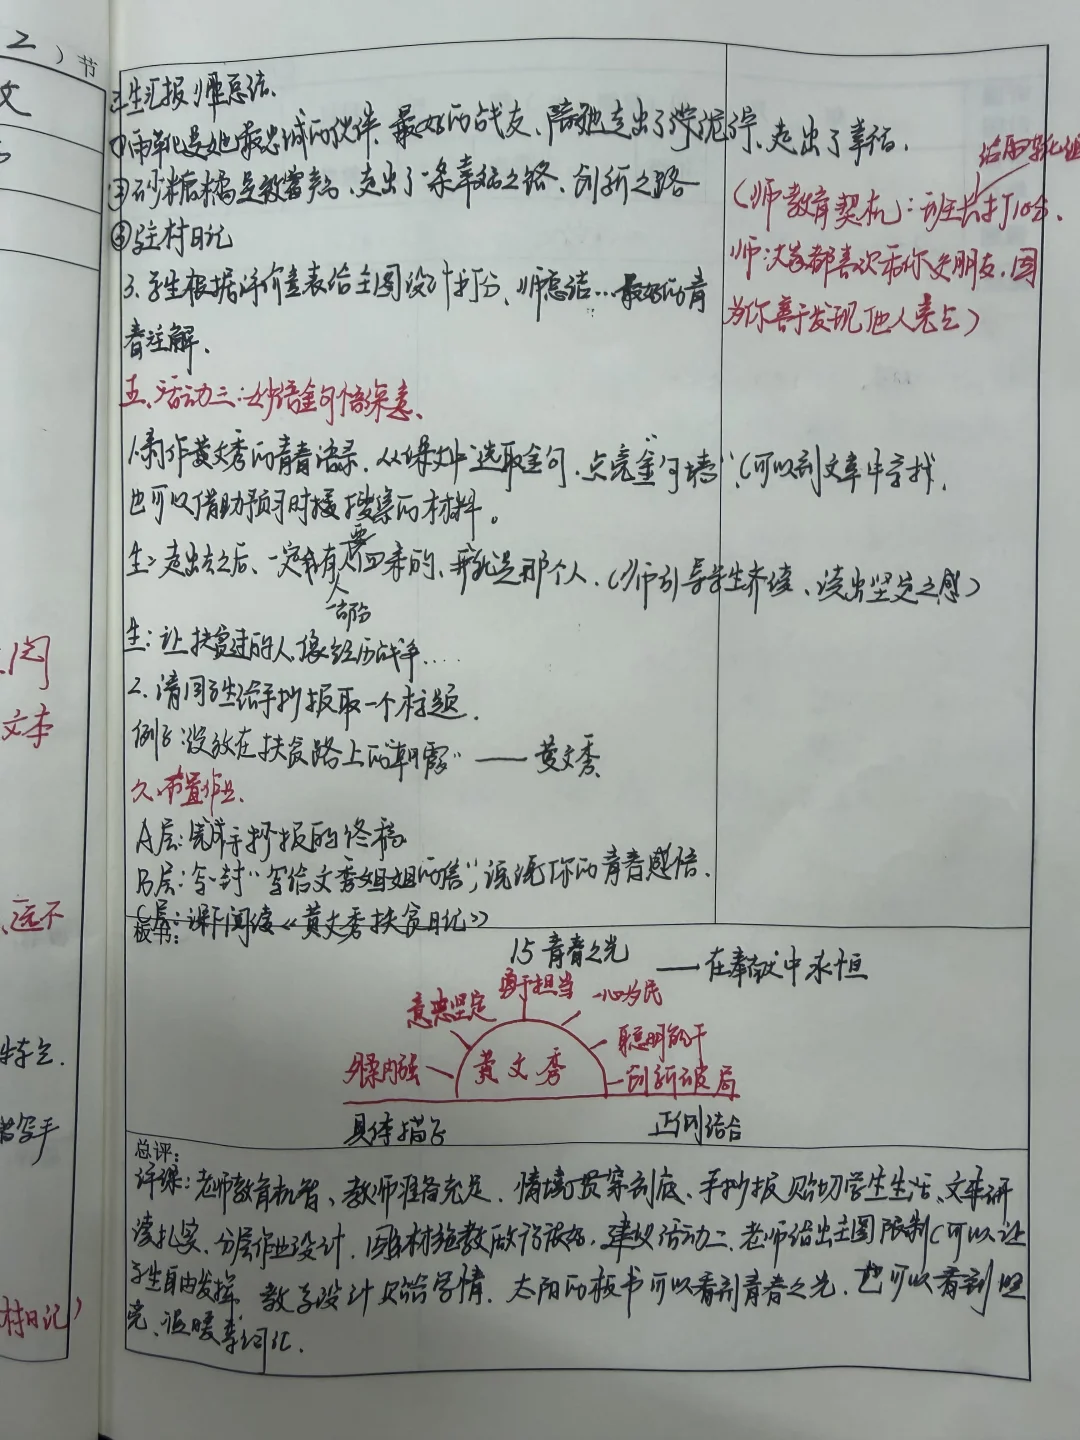 2 ）节
文
生汇报，师总结.
①雨靴是她最忠诚的伙伴、最好的战友、陪她走出了泥泞、走出了幸福.
③砂糖橘是致富果、走出了一条幸福之路、创新之路
④驻村日记
3.学生根据评价量表给主图设计打分、师总结…最好的青
春注解.
（师教育契机：班长打10分.
师：大家都喜欢和你交朋友，因
为你善于发现他人亮点）
五、活动三：妙语金句悟深意、
1.制作黄文秀的青春语录，从课文中选取金句，点亮"金句墙"（可以到文章中寻找，
也可以借助预习时搜集的材料。
生：走出去之后、一定会有人要回来的、我就是那个人.（师引导学生齐读、读出坚定之感）
生：让扶贫过的人像经历战争....
2.请同学给手抄报取一个标题.
例子：绽放在扶贫路上的"朝霞" —— 黄文秀
六、布置作业.
A层：完成手抄报的终稿
B层：写一封"写给文秀姐姐的信"，说说你的青春感悟.
C层：课下阅读《黄文秀扶贫日记》
板书：
15 青春之光 ——在奉献中永恒
意志坚定 勇于担当 一心为民
外柔内强 黄文秀 聪明能干
创新破局
具体描写 正侧结合
总评：
评课：老师教育机智、教师准备充足、情境贯穿到底、手抄报贴切学生生活、文本研
读扎实、分层作业设计，因材施教做得很好，建议活动二、老师给出主图限制（可以让
学生自由发挥 教学设计贴合学情. 太阳的板书可以看到青春之光，也可以看到照
亮、温暖等词汇.
文本
远不
特点.
写手
村日记）